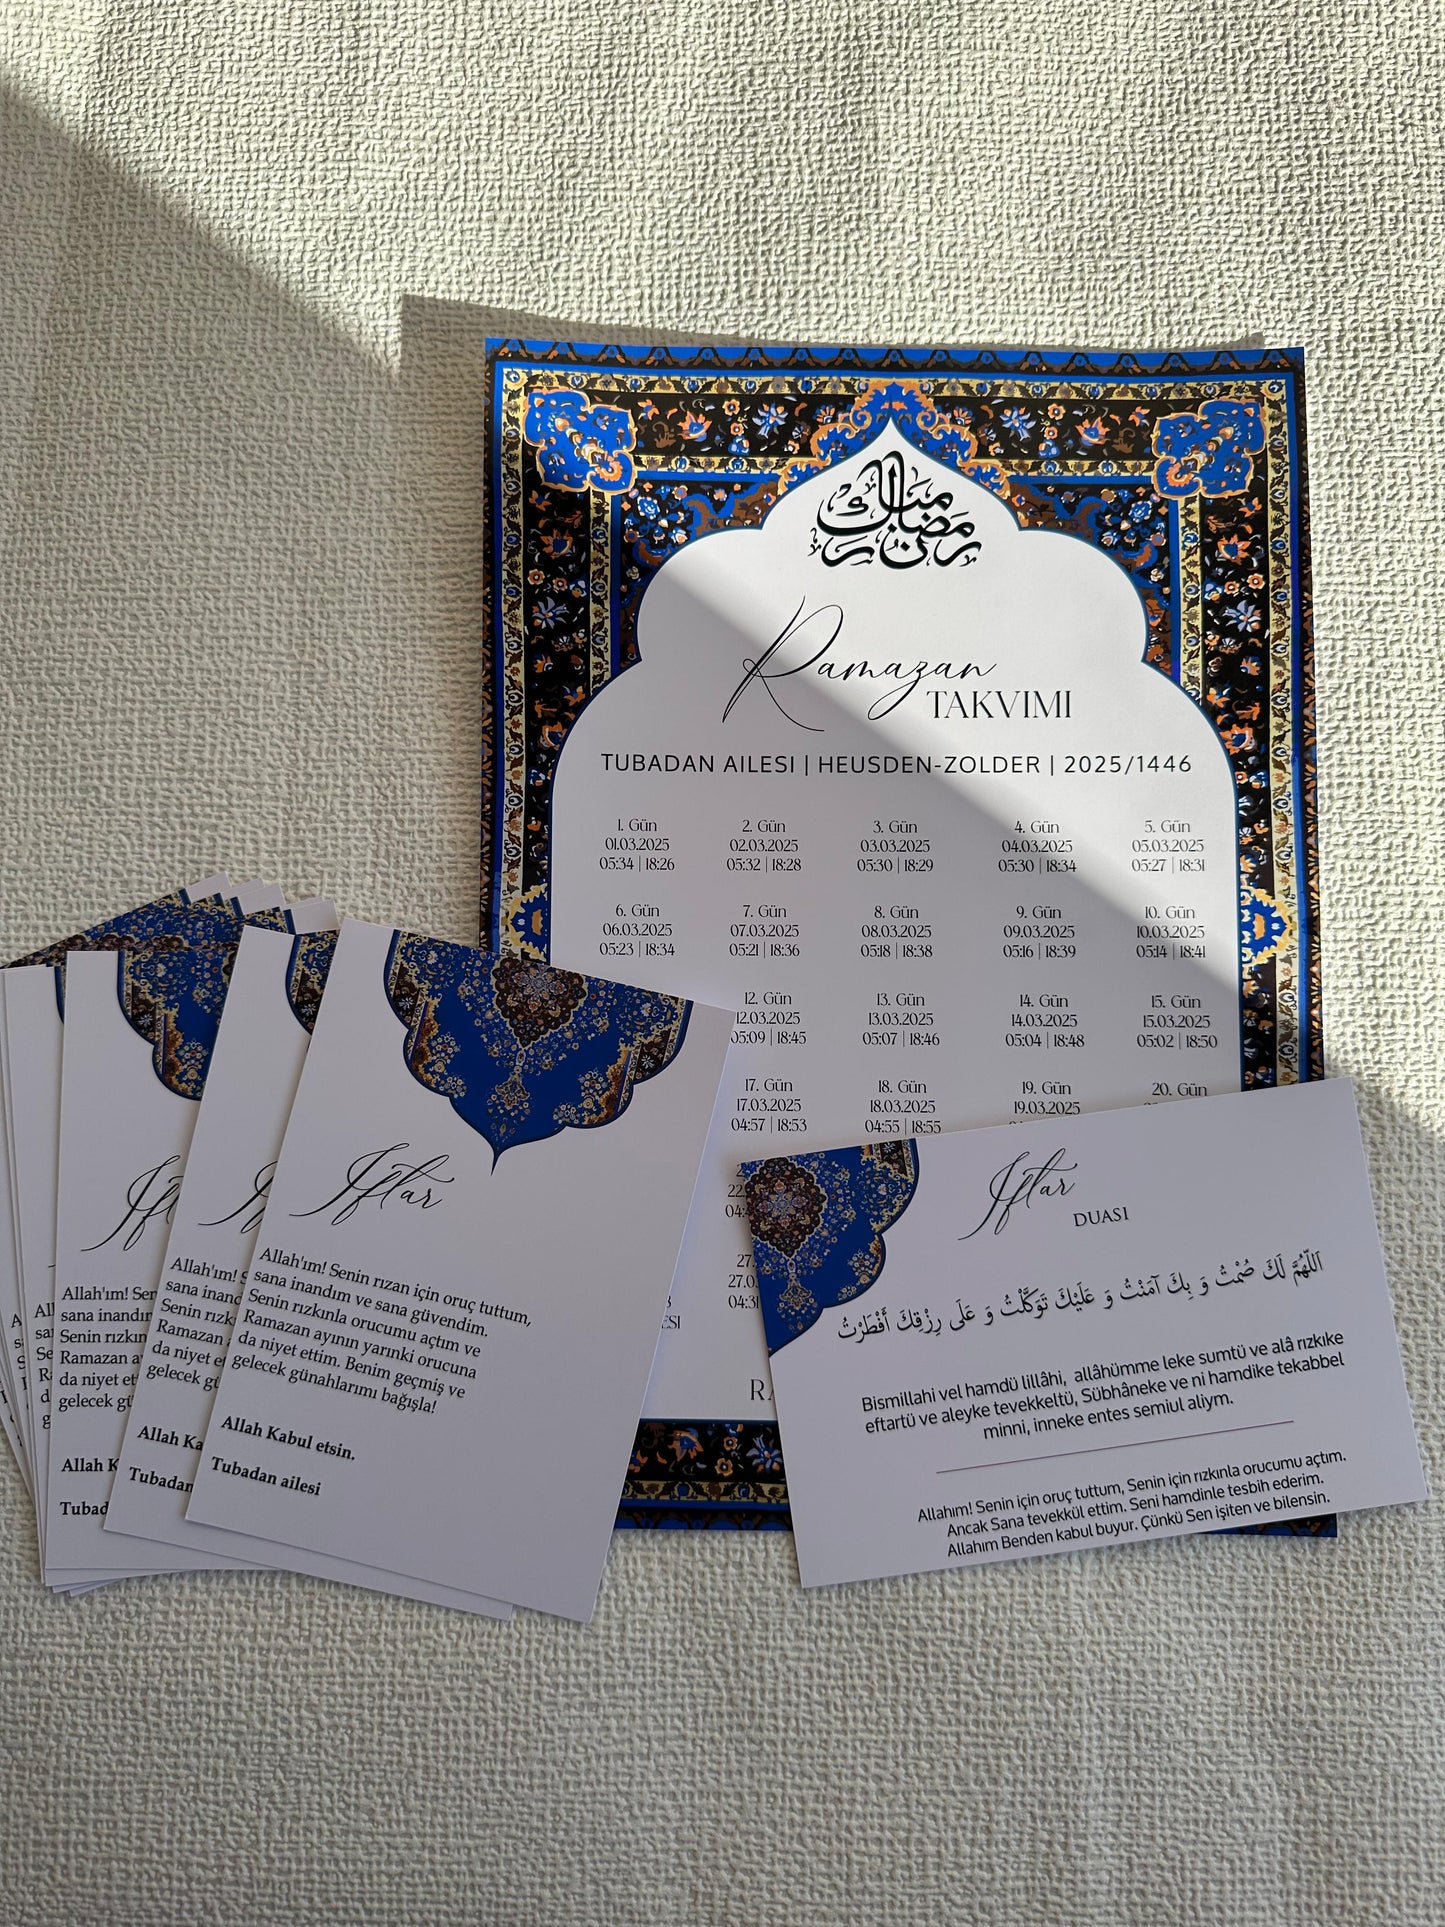 رمضان مبارك
Ramazan
TAKVIMI
TUBADAN AILESI | HEUSDEN-ZOLDER | 2025/1446
1. Gün 2. Gün 3. Gün 4. Gün 5. Gün
01.03.2025 02.03.2025 03.03.2025 04.03.2025 05.03.2025
05:34 | 18:26 05:32 | 18:28 05:30 | 18:29 05:30 | 18:34 05:27 | 18:31
6. Gün 7. Gün 8. Gün 9. Gün 10. Gün
06.03.2025 07.03.2025 08.03.2025 09.03.2025 10.03.2025
05:23 | 18:34 05:21 | 18:36 05:18 | 18:38 05:16 | 18:39 05:14 | 18:41
12. Gün 13. Gün 14. Gün 15. Gün
12.03.2025 13.03.2025 14.03.2025 15.03.2025
05:09 | 18:45 05:07 | 18:46 05:04 | 18:48 05:02 | 18:50
17. Gün 18. Gün 19. Gün 20. Gün
17.03.2025 18.03.2025 19.03.2025
04:57 | 18:53 04:55 | 18:55
Iftar
Allah'ım! Senin rızan için oruç tuttum,
sana inandım ve sana güvendim.
Senin rızkınla orucumu açtım ve
Ramazan ayının yarınki orucuna
da niyet ettim. Benim geçmiş ve
gelecek günahlarımı bağışla!
Allah Kabul etsin.
Tubadan ailesi
Iftar
DUASI
اَللّهُمَّ لَكَ صُمْتُ وَ بِكَ آمَنْتُ وَ عَلَيْكَ تَوَكَّلْتُ وَ عَلَى رِزْقِكَ أَفْطَرْتُ
Bismillahi vel hamdü lillâhi, allâhümme leke sumtü ve alâ rızkıke
eftartü ve aleyke tevekkeltü, Sübhâneke ve ni hamdike tekabbel
minni, inneke entes semiul aliym.
Allahım! Senin için oruç tuttum, Senin için rızkınla orucumu açtım.
Ancak Sana tevekkül ettim. Seni hamdinle tesbih ederim.
Allahım Benden kabul buyur. Çünkü Sen işiten ve bilensin.